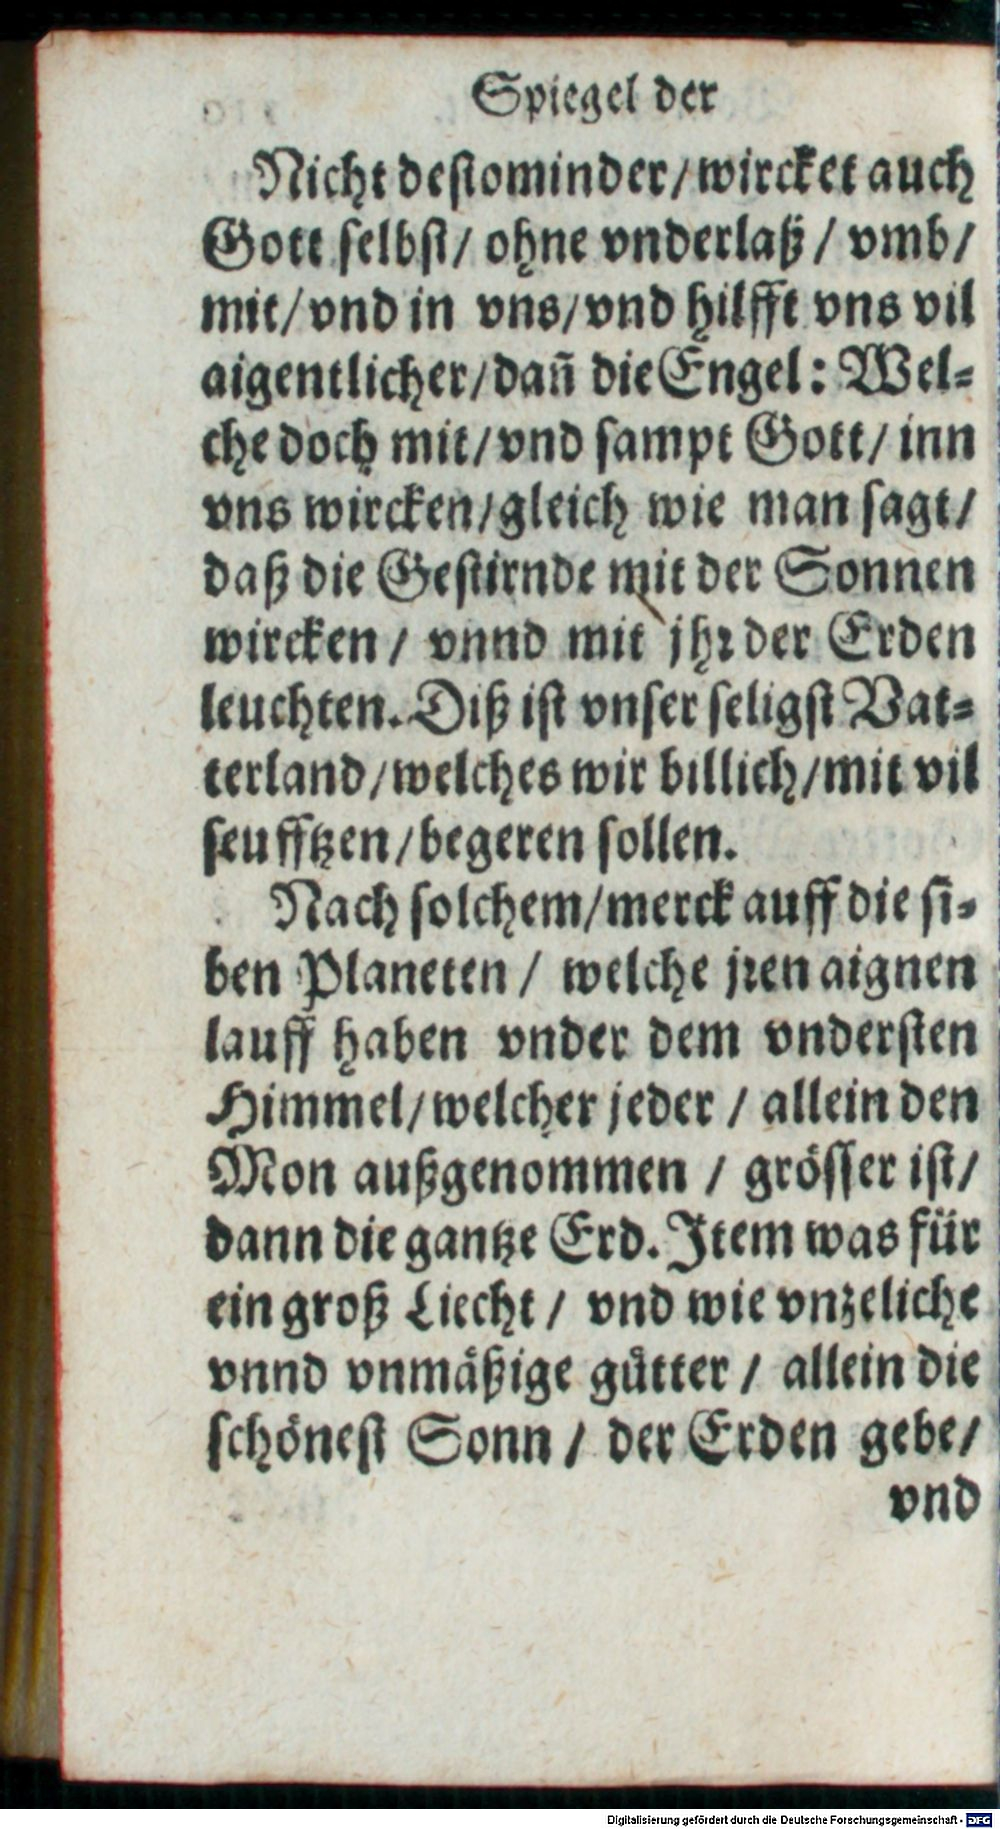 Spiegel der
Nicht destominder/ wircket auch
Gott selbst/ ohne vnderlaß / vmb/
mit/ vnd in vns/ vnd hilfft vns vil
aigentlicher/ dañ die Engel: Wel-
che doch mit/ vnd sampt Gott/ inn
vns wircken/ gleich wie man sagt/
daß die Gestirnde mit der Sonnen
wircken / vnnd mit jhr der Erden
leuchten. Diß ist vnser seligst Vat-
terland/ welches wir billich/ mit vil
seufftzen/ begeren sollen.
Nach solchem/ merck auff die si-
ben Planeten / welche jren aignen
lauff haben vnder dem vndersten
Himmel/ welcher jeder / allein den
Mon außgenommen / grösser ist/
dann die gantze Erd. Item was für
ein groß Liecht / vnd wie vnzeliche
vnnd vnmäßige gütter / allein die
schönest Sonn / der Erden gebe/
vnd
Digitalisierung gefördert durch die Deutsche Forschungsgemeinschaft - DFG